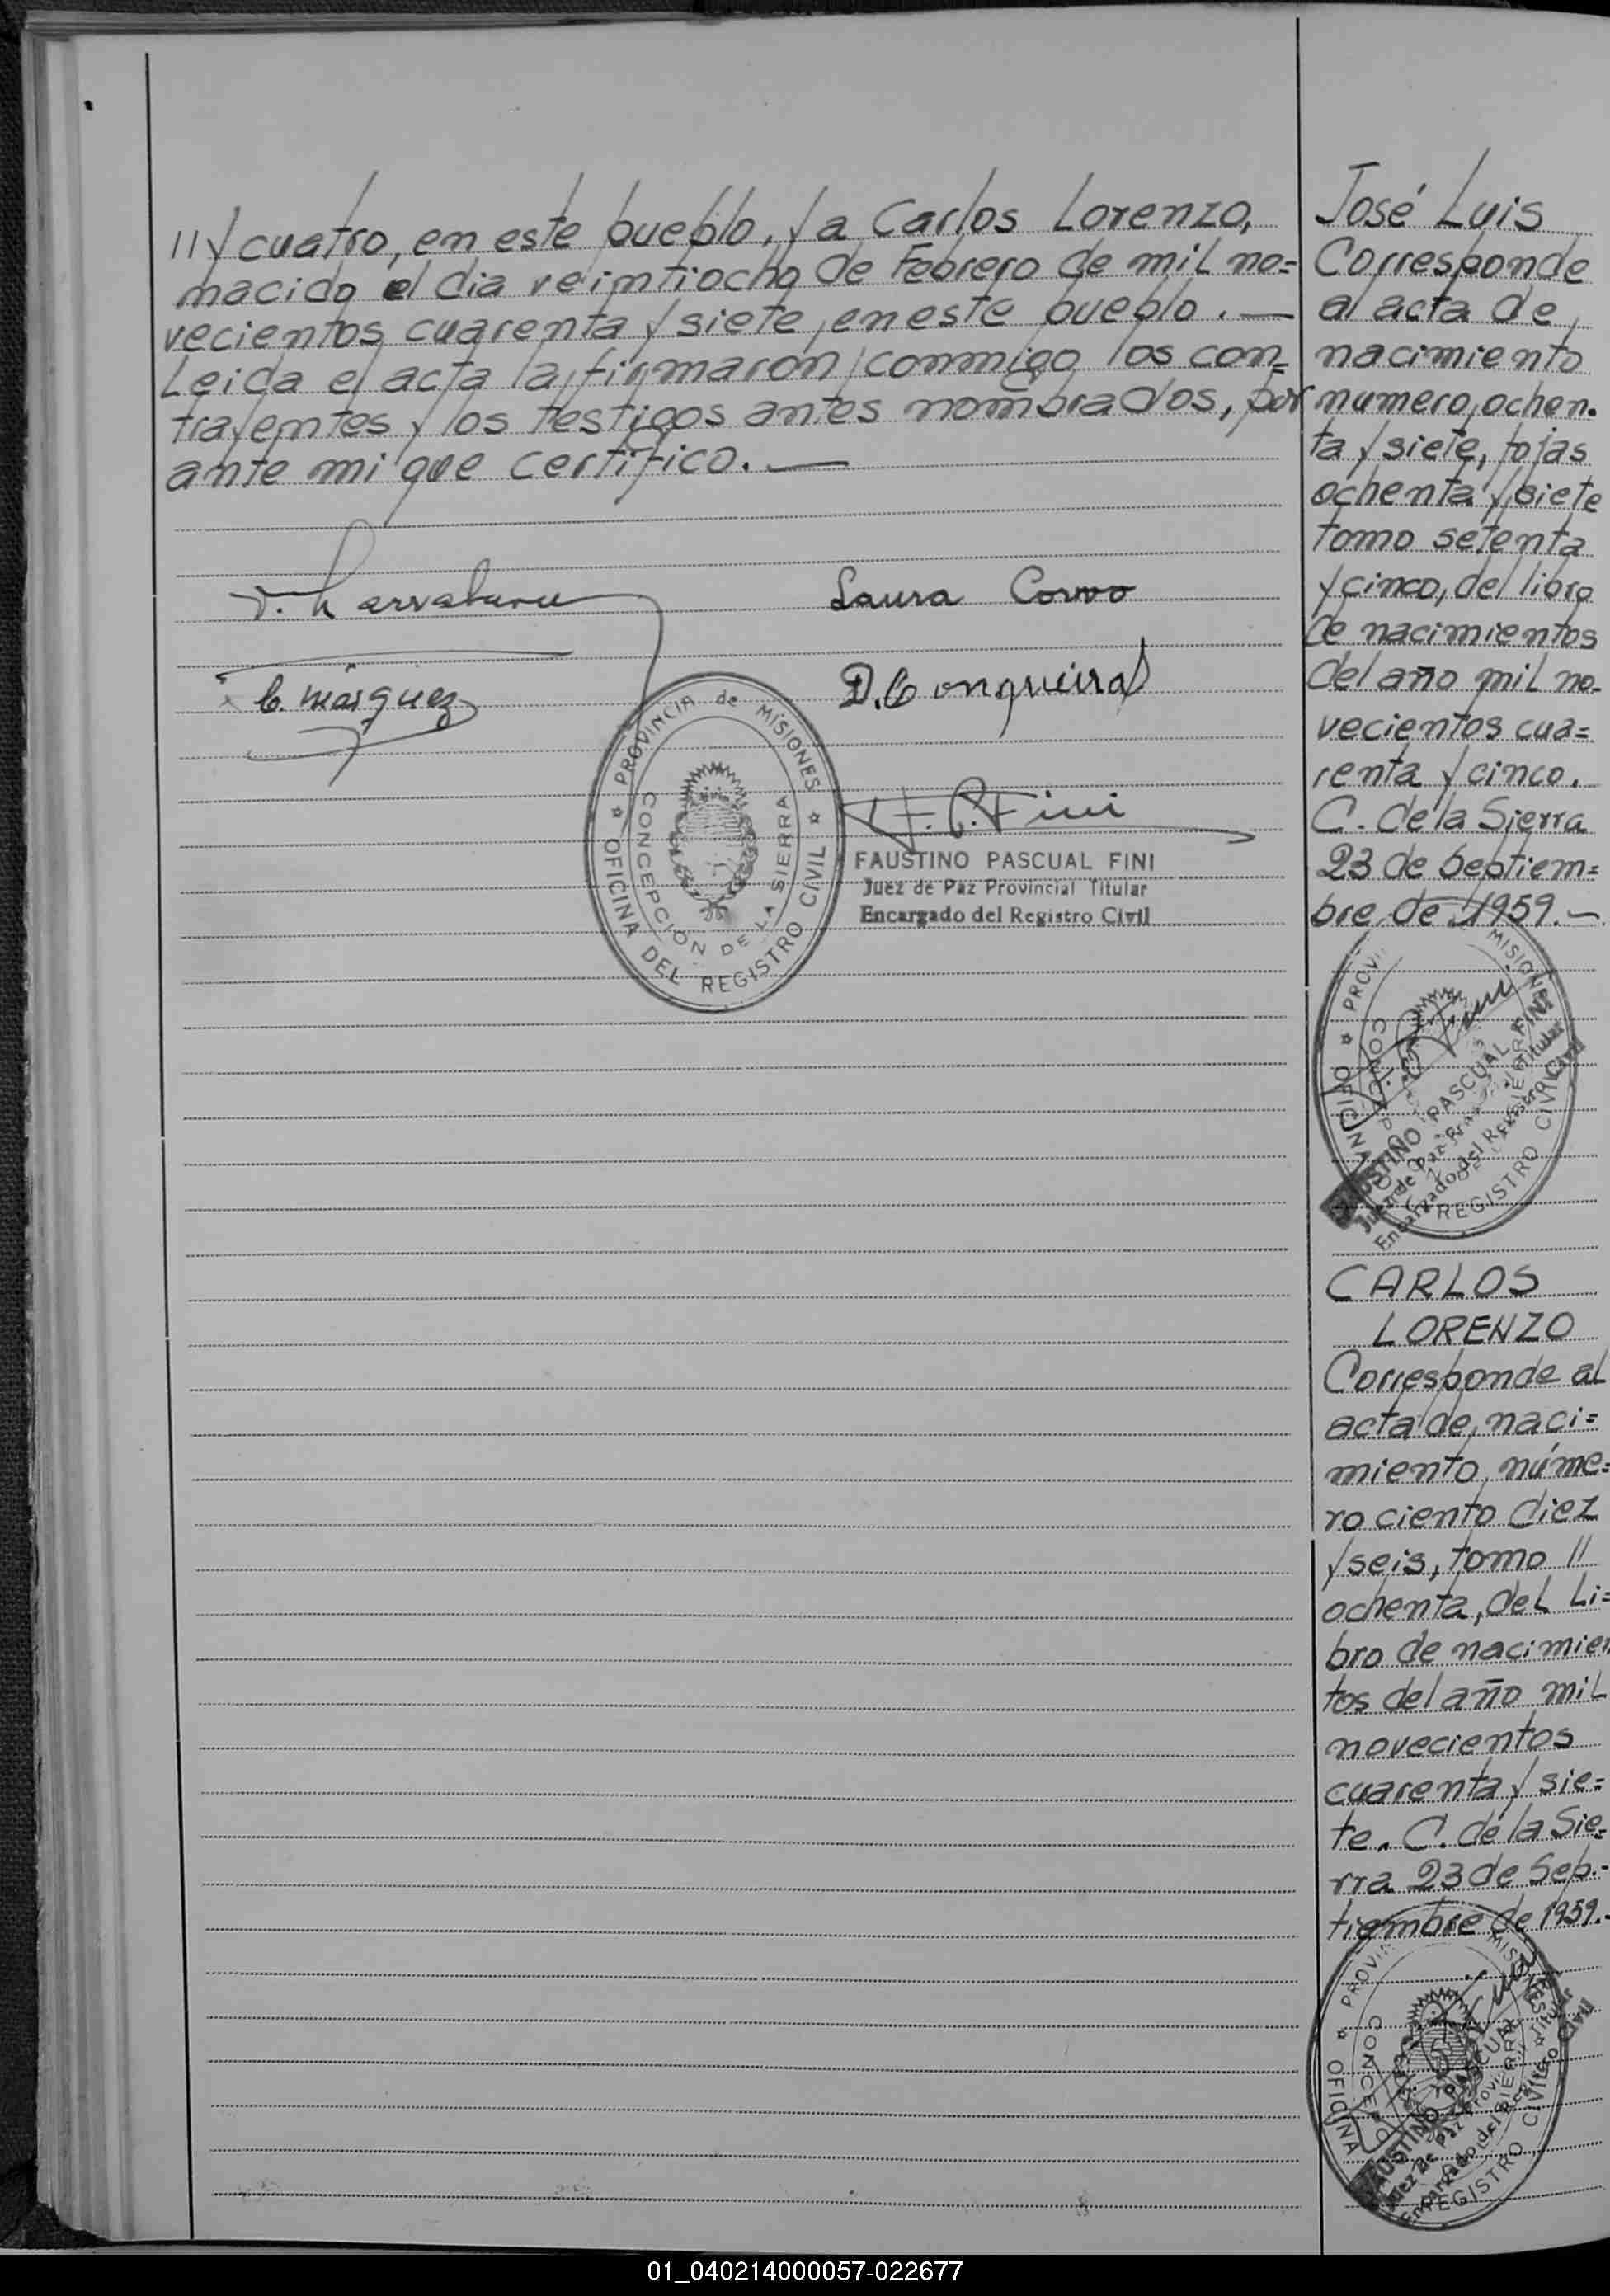 // y cuatro, en este pueblo, y a Carlos Lorenzo,
nacido el dia veintiocho de Febrero de mil no=
vecientos cuarenta y siete, en este pueblo. —
Leida el acta la firmaron conmigo los con=
trayentes y los testigos antes nombrados, por
ante mi que certifico. —
Laura Corvo
C. Márquez
PROVINCIA de MISIONES
OFICINA DEL REGISTRO CIVIL
CONCEPCIÓN DE LA SIERRA
F. P. Fini
FAUSTINO PASCUAL FINI
Juez de Paz Provincial Titular
Encargado del Registro Civil
José Luis
Corresponde
al acta de
nacimiento
numero, ochen-
ta y siete, fojas
ochenta y siete
tomo setenta
y cinco, del libro
de nacimientos
del año mil no-
vecientos cua=
renta y cinco.
C. de la Sierra
23 de Septiem=
bre de 1959. —
FAUSTINO PASCUAL FINI
Juez de Paz Provincial Titular
Encargado del Registro Civil
CARLOS
LORENZO
Corresponde al
acta de naci=
miento, núme=
ro ciento diez
y seis, tomo //
ochenta, del Li=
bro de nacimien
tos del año mil
novecientos
cuarenta y sie=
te. C. de la Sie=
rra 23 de Sep.-
tiembre de 1959.-
FAUSTINO PASCUAL
Juez de Paz Provincial Titular
Encargado del Registro Civil
01_040214000057-022677